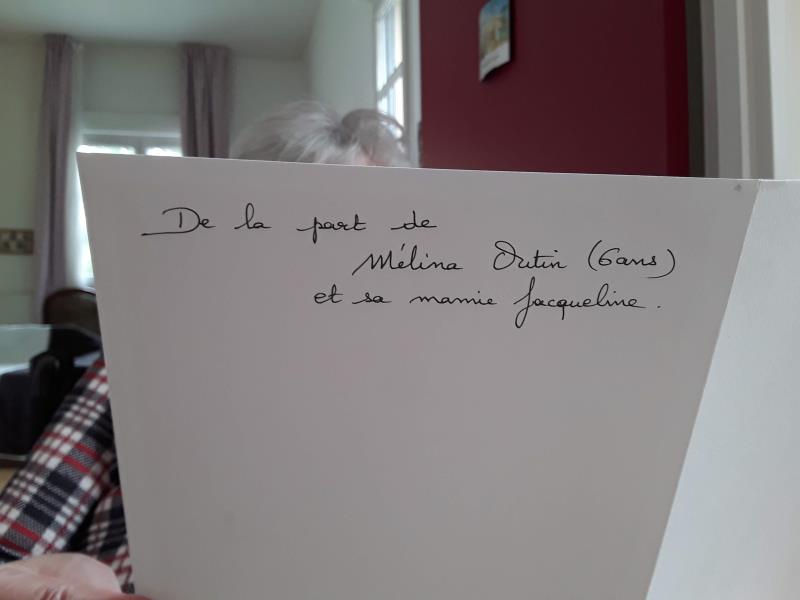 De la part de
Mélina Outin (6ans)
et sa mamie Jacqueline.